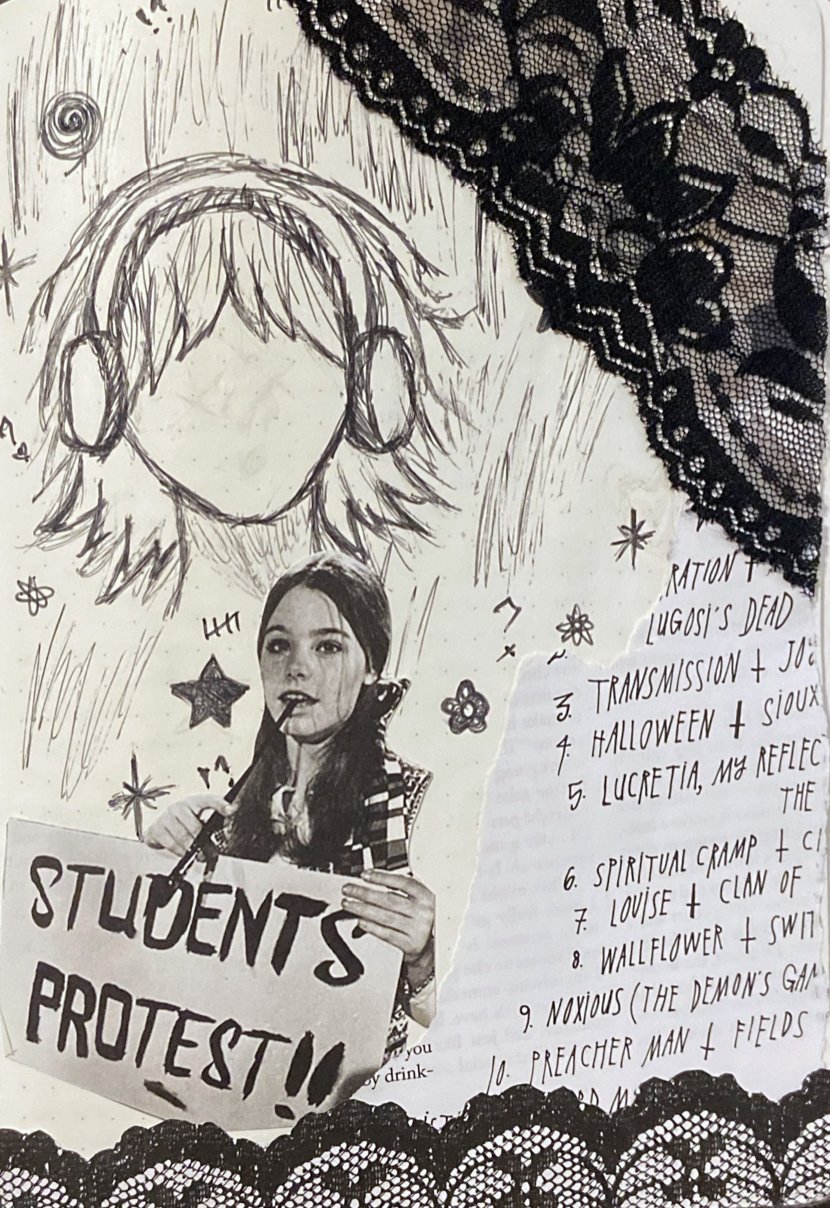 RATION †
LUGOSI'S DEAD
3. TRANSMISSION † JO
4. HALLOWEEN † SIOUX
5. LUCRETIA, MY REFLEC
THE
6. SPIRITUAL CRAMP † C
7. LOUISE † CLAN OF
8. WALLFLOWER † SWIT
9. NOXIOUS (THE DEMON'S GAM
10. PREACHER MAN † FIELDS
STUDENTS
PROTEST!!
you
by drink-